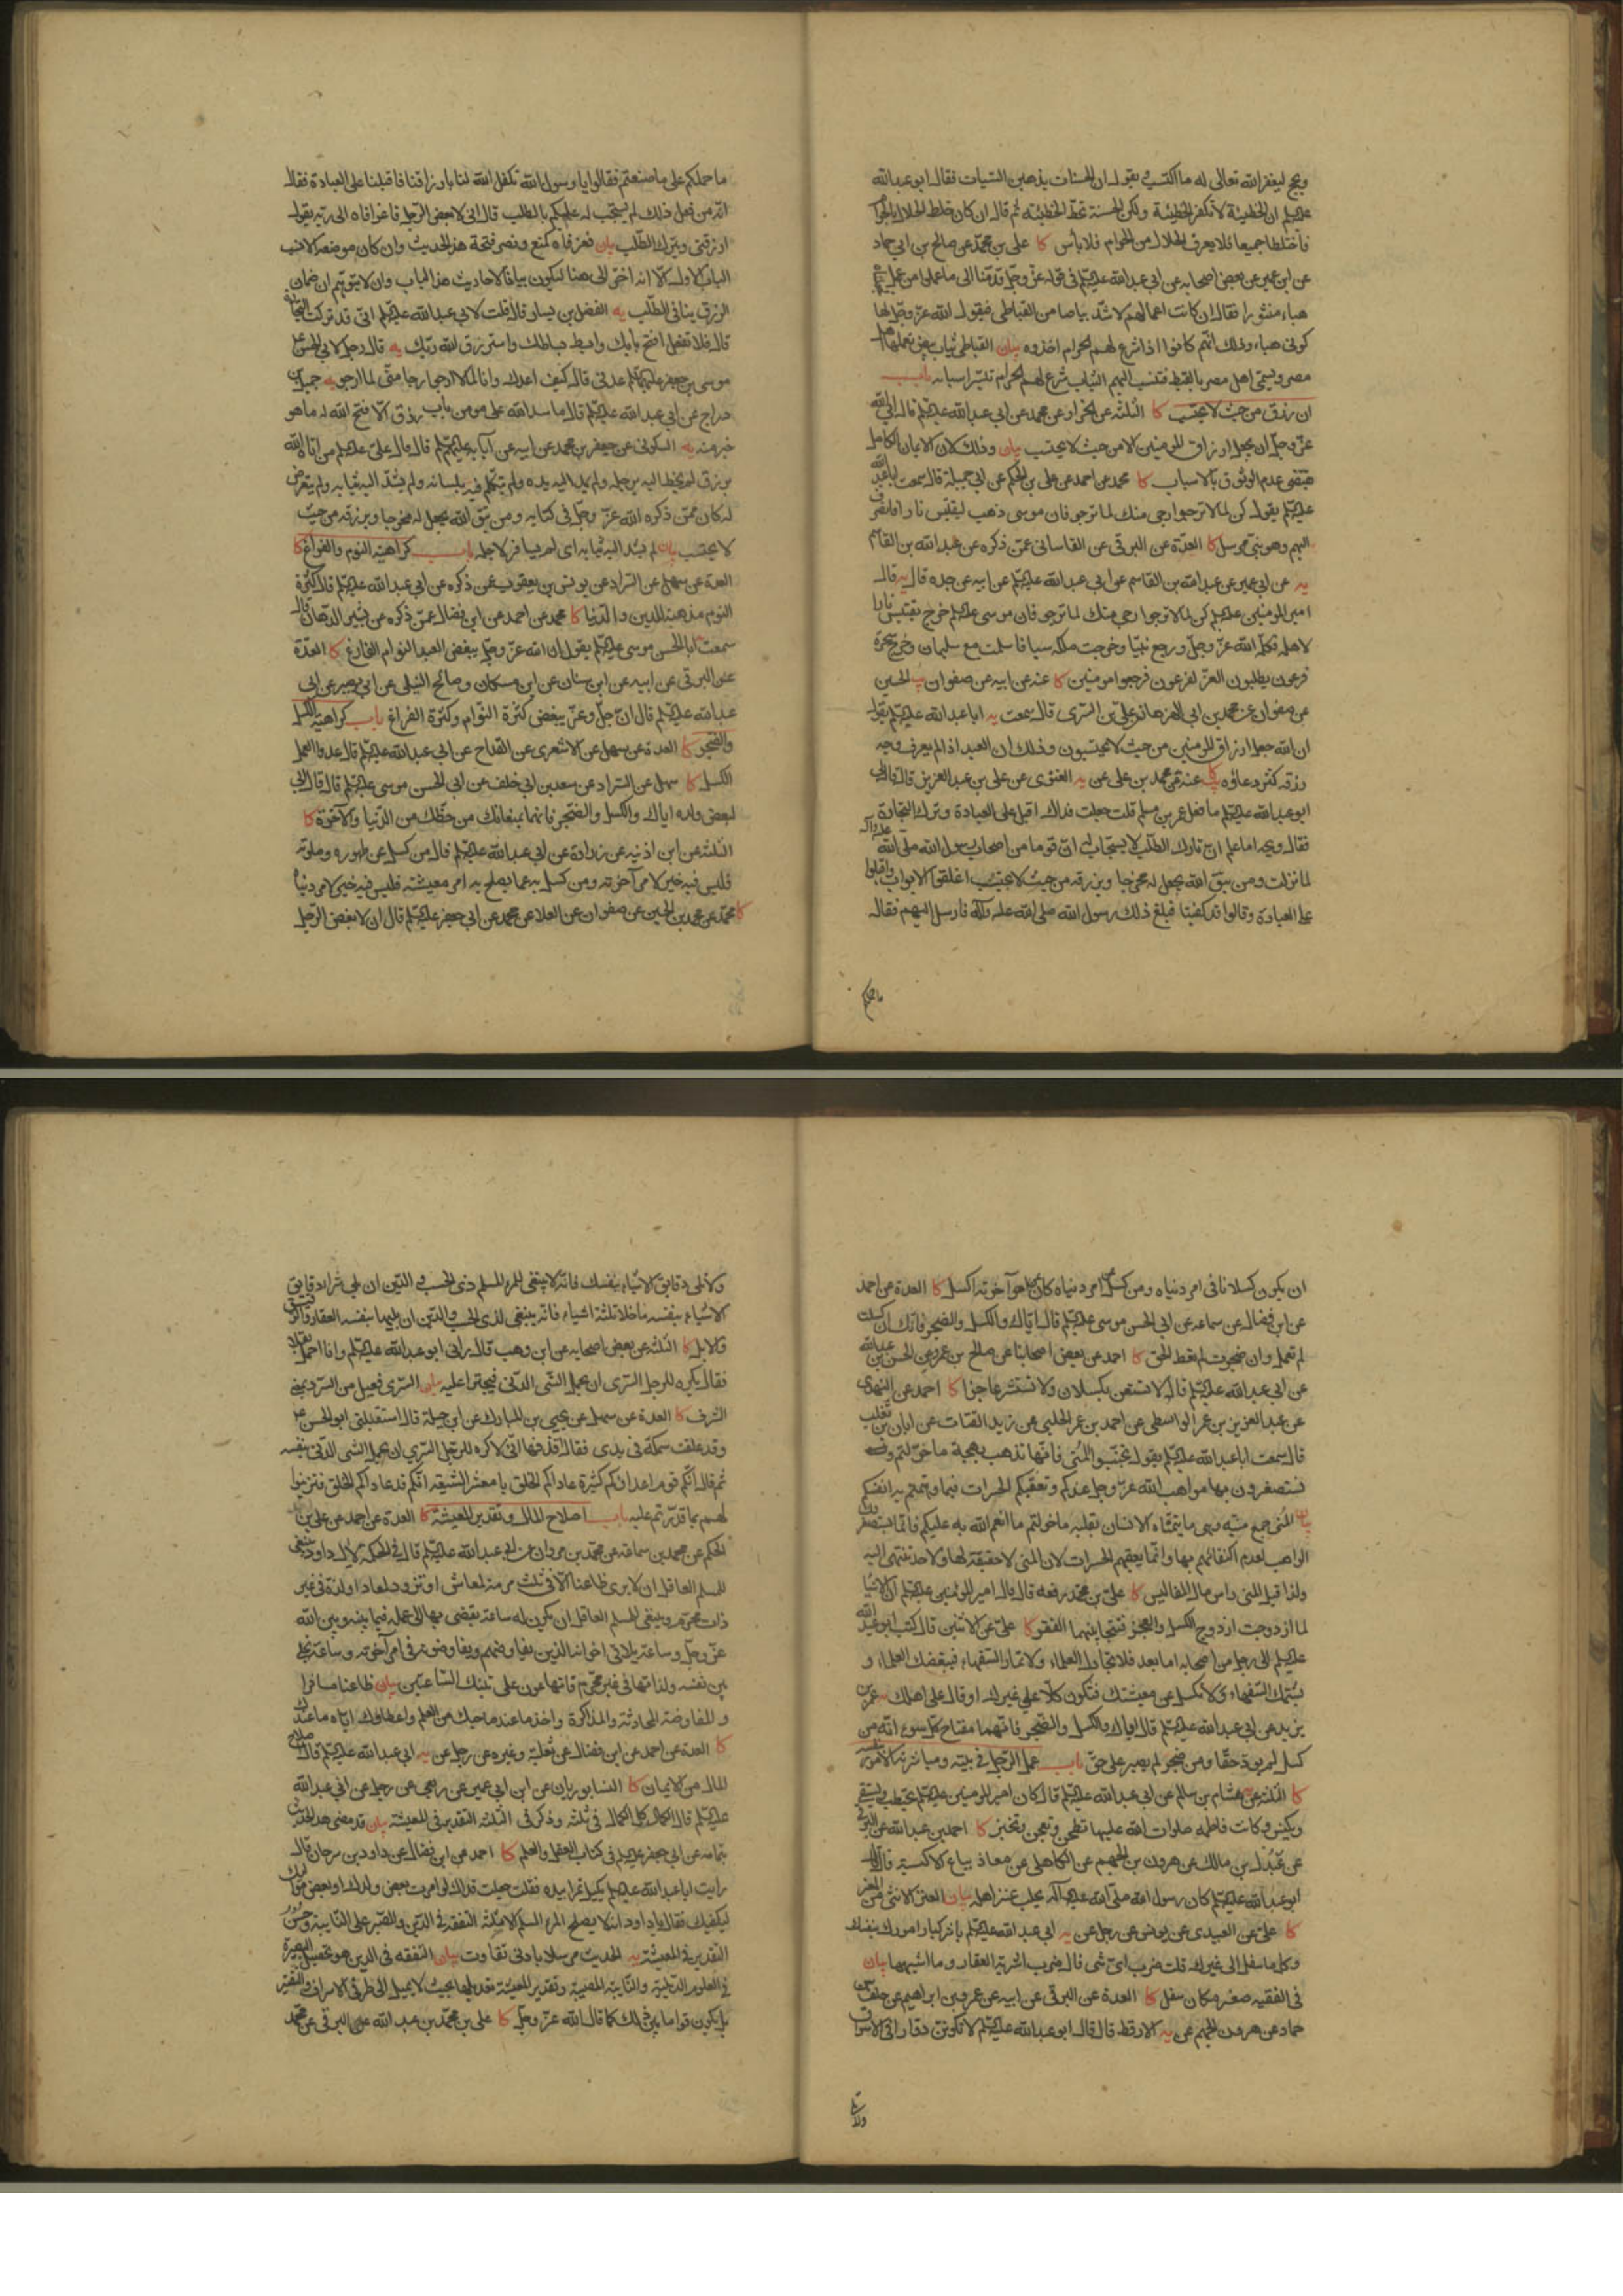 ويحج ليغفر الله تعالى له ما اكتسب ويقول ان الحسنات يذهبن السيئات فقال ابو عبدالله
عليه السلم ان الخطيئة لا تكفر الخطيئة ولكن الحسنة تحط الخطيئة ثم قال ان كان خلط الحلال بالحرام
فاختلطا جميعا فلا يعرف الحلال من الحرام فلا بأس كا على بن محمد عن صالح بن ابي حماد
عن ابن ابي عمير عن بعض اصحابه عن ابي عبدالله عليه السلم في قوله عز وجل وقدمنا الى ما عملوا من عمل فجعلناه
هباء منثورا فقال ان كانت اعمالهم لاشد بياضا من القباطى فيقول الله عز وجل لها
كونى هباء وذلك انهم كانوا اذا شرع لهم الحرام اخذوه بيان القباطى ثياب بيض يعملها اهل
مصر ويسمى اهل مصر بالقبط فتنسب اليهم الثياب شرع لهم الحرام تيسر اسبابه باب
ان رزق من حيث لا يحتسب كا الثلثة عن الخراز عن محمد عن ابي عبدالله عليه السلم قال ابي الله
عز وجل ان يجعل ارزاق المؤمنين الا من حيث لا يحتسب بيان وذلك لان الايمان الكامل
يقتضى عدم الوثوق بالاسباب كا محمد عن احمد عن على بن الحكم عن ابي جميلة قال سمعت ابا عبد الله
عليه السلم يقول كن لما لا ترجوا ارجى منك لما ترجو فان موسى ذهب ليقتبس نارا فانصرف
اليهم وهو نبى مرسل كا العدة عن البرقى عن القاسانى عمن ذكره عن عبدالله بن القاسم
يه عن ابي عمير عن عبدالله بن القاسم عن ابي عبدالله عليه السلم عن ابيه عن جده قال يه قال
امير المؤمنين عليه السلم كن لما لا ترجوا ارجى منك لما ترجو فان موسى عليه السلم خرج يقتبس نارا
لاهله فكلمه الله عز وجل ورجع نبيا وخرجت ملكة سبا فاسلمت مع سليمان وخرج سحرة
فرعون يطلبون العز لفرعون فرجعوا مومنين كا عنه عن ابيه عن صفوان يب الحسين
عن صفوان عن محمد بن ابي الهزهاز عن على بن السرى قال سمعت يه ابا عبدالله عليه السلم يقول
ان الله جعل ارزاق المومنين من حيث لا يحتسبون وذلك ان العبد اذا لم يعرف وجه
رزقه كثر دعاؤه كا عنه عن محمد بن على عن يه الغنوى عن على بن عبد العزيز قال قال لى
ابو عبدالله عليه السلم ما فعل عمر بن مسلم قلت جعلت فداك اقبل على العبادة وترك التجارة
فقال ويحه اما علم ان تارك الطلب لا يستجاب له ان قوما من اصحاب رسول الله صلى الله عليه وآله
لما نزلت ومن يتق الله يجعل له مخرجا ويرزقه من حيث لا يحتسب اغلقوا الابواب واقبلوا
على العبادة وقالوا قد كفينا فبلغ ذلك رسول الله صلى الله عليه وآله فارسل اليهم فقال
ما حملكم
ما حملكم على ما صنعتم فقالوا يا رسول الله تكفل الله لنا بارزاقنا فاقبلنا على العبادة فقال
انه من فعل ذلك لم يستجب له عليكم بالطلب قال انى لابغض الرجل فاغرا فاه الى ربه يقول
ارزقنى ويترك الطلب بيان فغر فاه كمنع ونصر فتحه هذا الحديث وان كان موضعه الانسب
الباب الاول الا انه اخر الى ههنا ليكون بيانا لاحاديث هذا الباب وان لا يتوهم ان ضمان
الرزق ينافى الطلب يه الفضل بن يسار قال قلت لابي عبدالله عليه السلم انى قد تركت التجارة
قال فلا تفعل افتح بابك وابسط بساطك واسترزق الله ربك يه قال رجل لابي الحسن
موسى بن جعفر عليهما السلم عدنى قال كيف اعدك وانا لما لا ارجو ارجا منى لما ارجو يه جميل بن
دراج عن ابي عبدالله عليه السلم قال ما سد الله على مومن باب رزق الا فتح الله له ما هو
خير منه يه السكونى عن جعفر بن محمد عن ابيه عن آبائه عليهم السلم قال قال على عليه السلم من اتاه الله
برزق لم يخط اليه برجله ولم يمد اليه يده ولم يتكلم فيه بلسانه ولم يشد اليه ثيابه ولم يتعرض
له كان ممن ذكره الله عز وجل في كتابه ومن يتق الله يجعل له مخرجا ويرزقه من حيث
لا يحتسب بيان لم يشد اليه ثيابه اى لم يسافر لاجله باب كراهية النوم والفراغ كا
العدة عن سهل عن السراد عن يونس بن يعقوب عمن ذكره عن ابي عبدالله عليه السلم قال كثرة
النوم مذهبة للدين والدنيا كا محمد عن احمد عن ابن فضال عمن ذكره عن بشير الدهان قال
سمعت ابا الحسن موسى عليه السلم يقول ان الله عز وجل يبغض العبد النوام الفارغ كا العدة
عن البرقى عن ابيه عن ابن سنان عن ابن مسكان وصالح النيلى عن ابي بصير عن ابي
عبدالله عليه السلم قال ان الله جل وعز يبغض كثرة النوم وكثرة الفراغ باب كراهية الكسل
والضجر كا العدة عن سهل عن الاشعرى عن القداح عن ابي عبدالله عليه السلم قال عدو العمل
الكسل كا سهل عن السراد عن سعد بن ابي خلف عن ابي الحسن موسى عليه السلم قال قال ابي
لبعض ولده اياك والكسل والضجر فانهما يمنعانك من حظك من الدنيا والآخرة كا
الثلثة عن ابن اذينة عن زرارة عن ابي عبدالله عليه السلم قال من كسل عن طهوره وصلوته
فليس فيه خير لامر آخرته ومن كسل به عما يصلح به امر معيشته فليس فيه خير لامر دنياه
كا محمد عن محمد بن الحسين عن صفوان عن العلا عن محمد عن ابي جعفر عليه السلم قال ان لابغض الرجل
ان يكون كسلانا في امر دنياه ومن كسل عن امر دنياه كان عما هو آخرته اكسل كا العدة عن احمد
عن ابن فضال عن سماعة عن ابي الحسن موسى عليه السلم قال اياك والكسل والضجر فانك ان كسلت
لم تعمل وان ضجرت لم تعط الحق كا احمد عن بعض اصحابنا عن صالح بن عمر عن الحسن بن عبدالله
عن ابي عبدالله عليه السلم قال لا تستعن بكسلان ولا تستشر عاجزا كا احمد عن النهدى
عن عبد العزيز بن عمر الواسطى عن احمد بن عمر الحلبى عن زيد القتات عن ابان بن تغلب
قال سمعت ابا عبدالله عليه السلم يقول تجنبوا المنى فانها تذهب بهجة ما خولتم
تستصغرون بها مواهب الله عز وجل عندكم وتعقبكم الحسرات فيما وهمتم به انفسكم
بيان المنى جمع منية وهى ما يتمناه الانسان بقلبه ما خولتم ما انعم الله به عليكم فانما تستصغر
المواهب لعدم اكتفائهم بها وانما يعقبهم الحسرات لان المنى لا حقيقة لها ولا حد تنتهى اليه
ولذا قيل المنى راس مال المفاليس كا على بن محمد رفعه قال قال امير المؤمنين عليه السلم ان الاشيا
لما ازدوجت ازدوج الكسل والعجز فنتجا بينهما الفقر كا على عن الاثنين قال كتب ابو عبد الله
عليه السلم الى رجل من اصحابه اما بعد فلا تجادل العلماء ولا تمار السفهاء فيبغضك العلماء و
يشتمك السفهاء ولا تكسل عن معيشتك فتكون كلا على غيرك او قال على اهلك يه عمر بن
يزيد عن ابي عبدالله عليه السلم قال اياك والكسل والضجر فانهما مفتاح كل سوء انه من
كسل لم يود حقا ومن ضجر لم يصبر على حق باب عمل الرجل في بيته ومباشرته الامور بنفسه
كا الثلثة عن هشام بن سالم عن ابي عبدالله عليه السلم قال كان امير المومنين عليه السلم يحتطب ويستقى
ويكنس وكانت فاطمه صلوات الله عليها تطحن وتعجن وتخبز كا احمد بن عبدالله عن البرقى
عن عبدل بن مالك عن هرون بن الجهم عن الكاهلى عن معاذ بياع الاكسية قال قال
ابو عبدالله عليه السلم كان رسول الله صلى الله عليه وآله يحلب عنز اهله بيان العنز الانثى من المعز
كا على عن العبيدى عن يونس عن رجل عن يه ابي عبدالله عليه السلم باشر كبار امورك بنفسك
وكل ما سفل الى غيرك قلت ضرب اى شى قال ضرب اشرية العقار وما اشبهها بيان
في الفقيه صغر مكان سفل كا العدة عن البرقى عن ابيه عن عمرو بن ابراهيم عن خلف بن
حماد عن هرون الجهم عن يه الارقط قال قال ابو عبدالله عليه السلم لا تكونن دوارا في الاسواق
ولا تلى
ولا تلى دقايق الاشياء بنفسك فانه لا ينبغى للمرء المسلم ذى الحسب والدين ان يلى شراء دقايق
الاشياء بنفسه ما خلا ثلثة اشياء فانه ينبغى لذى الحسب والدين ان يليها بنفسه العقار والرقيق
والابل كا الثلثة عن بعض اصحابه عن ابن وهب قال رآنى ابو عبدالله عليه السلم وانا احمل بقلا
فقال يكره للرجل السرى ان يحمل الشى الدنى فيجترا عليه بيان السرى فعيل من السرو بمعنى
الشرف كا العدة عن سهل عن يحيى بن المبارك عن ابن جبلة قال استقبلنى ابو الحسن
وقد علقت سمكة في يدى فقال اقذفها انى لاكره للرجل السرى ان يحمل الشى الدنى بنفسه
ثم قال انكم قوم اعداؤكم كثيرة عاداكم الخلق يا معشر الشيعة انكم قد عاداكم الخلق فتزينوا
لهم بما قدرتم عليه باب اصلاح المال وتقدير المعيشة كا العدة عن احمد عن على بن
الحكم عن محمد بن سماعة عن محمد بن مروان عن ابي عبدالله عليه السلم قال في حكمة آل داود ينبغى
للمسلم العاقل ان لا يرى ظاعنا الا في ثلث مرمة لمعاش او تزود لمعاد او لذة في غير
ذات محرم وينبغى للمسلم العاقل ان يكون له ساعة يفضى بها الى عمله فيما بينه وبين الله
عز وجل وساعة يلاقى اخوانه الذين يفاوضهم ويفاوضونه في امر آخرته وساعة يخلى
بين نفسه ولذاتها في غير محرم فانها عون على تينك الساعتين بيان ظاعنا مسافرا
والمفاوضة المحادثة والمذاكرة واخذ ما عند صاحبك من العلم واعطاؤك اياه ما عندك
كا العدة عن احمد عن ابن فضال عن ثعلبة وغيره عن رجل عن يه ابي عبدالله عليه السلم قال اصلاح
المال من الايمان كا النيسابوريان عن ابن ابي عمير عن ربعى عن رجل عن ابي عبدالله
عليه السلم قال الكمال كل الكمال في ثلثة وذكر في الثلثة التقدير في المعيشة بيان قد مضى هذا الحديث
بتمامه عن ابي جعفر عليه السلم في كتاب العقل والعلم كا احمد عن ابن فضال عن داود بن سرحان قال
رايت ابا عبدالله عليه السلم يكيل تمرا بيده فقلت جعلت فداك لو امرت بعض ولدك او بعض مواليك
ليكفيك فقال يا داود انه لا يصلح المرء المسلم الا ثلثة التفقه في الدين والصبر على النائبة وحسن
التقدير في المعيشة يه الحديث مرسلا بادنى تفاوت بيان التفقه في الدين هو تحصيل البصيرة
في العلوم الدينية والنايبة المصيبة وتقدير المعيشة تعديلها بحيث لا يميل الى طرفى الاسراف والتقتير
بل يكون قواما بين ذلك كما قال الله عز وجل كا على بن محمد بن عبدالله عن البرقى عن محمد